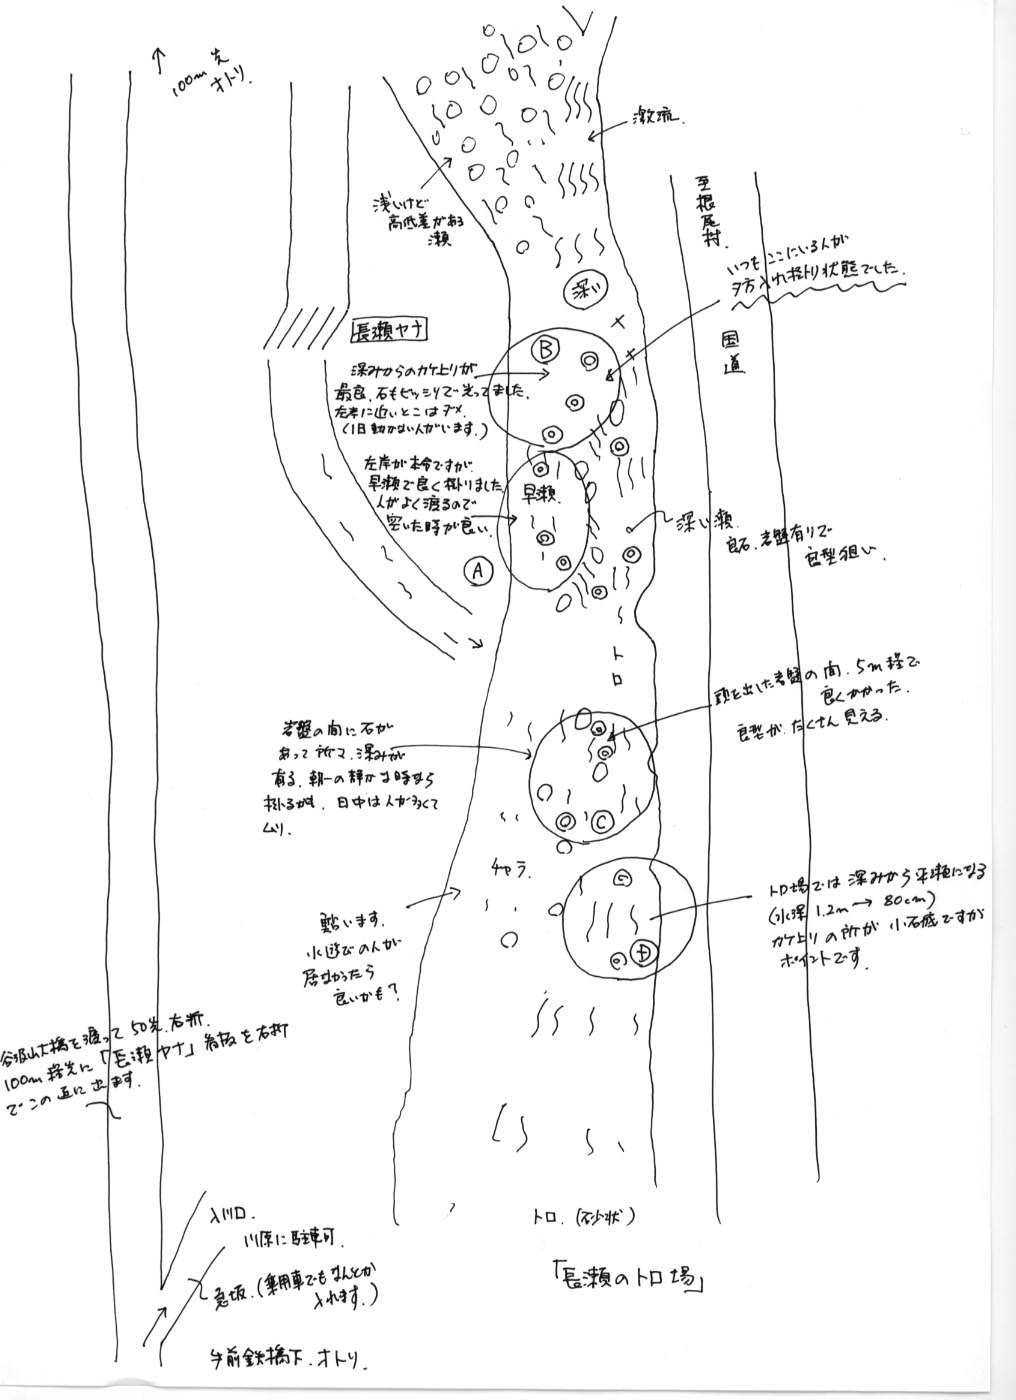 100m先
オトリ.
激流.
浅いけど
高低差がある
瀬
至根尾村.
いつもここにいる人が
夕方入れ掛り状態でした.
深い
国道
長瀬ヤナ
B
深みからのカケ上りが
最良.石もビッシリで光ってました.
左岸に近いとこはダメ.
(1日動かない人がいます.)
左岸が本命ですが.
早瀬で良く掛りました
人がよく渡るので
空いた時が良い.
早瀬.
A
深い瀬.
良石.岩盤有りで
良型狙い.
トロ
頭を出した岩盤の間.5m程で
良くかかった.
良型が.たくさん見える.
岩盤の間に石が
あって所で、深みが
有る.朝一の静かな時なら
掛るがも.日中は人が多くて
ムリ.
C
チャラ.
鮎います.
水遊びの人が
居なかったら
良いかも?
トロ場では深みから平瀬になる
(水深1.2m→80cm)
カケ上りの所が小石底ですが
ポイントです.
D
谷汲山大橋を渡って50先.右折.
100m程先に「長瀬ヤナ」看板を右折
でこの道に出ます.
入川口.
川原に駐車可.
急坂.(乗用車でもなんとか
入れます.)
手前鉄橋下.オトリ.
トロ.(砂状)
「長瀬のトロ場」